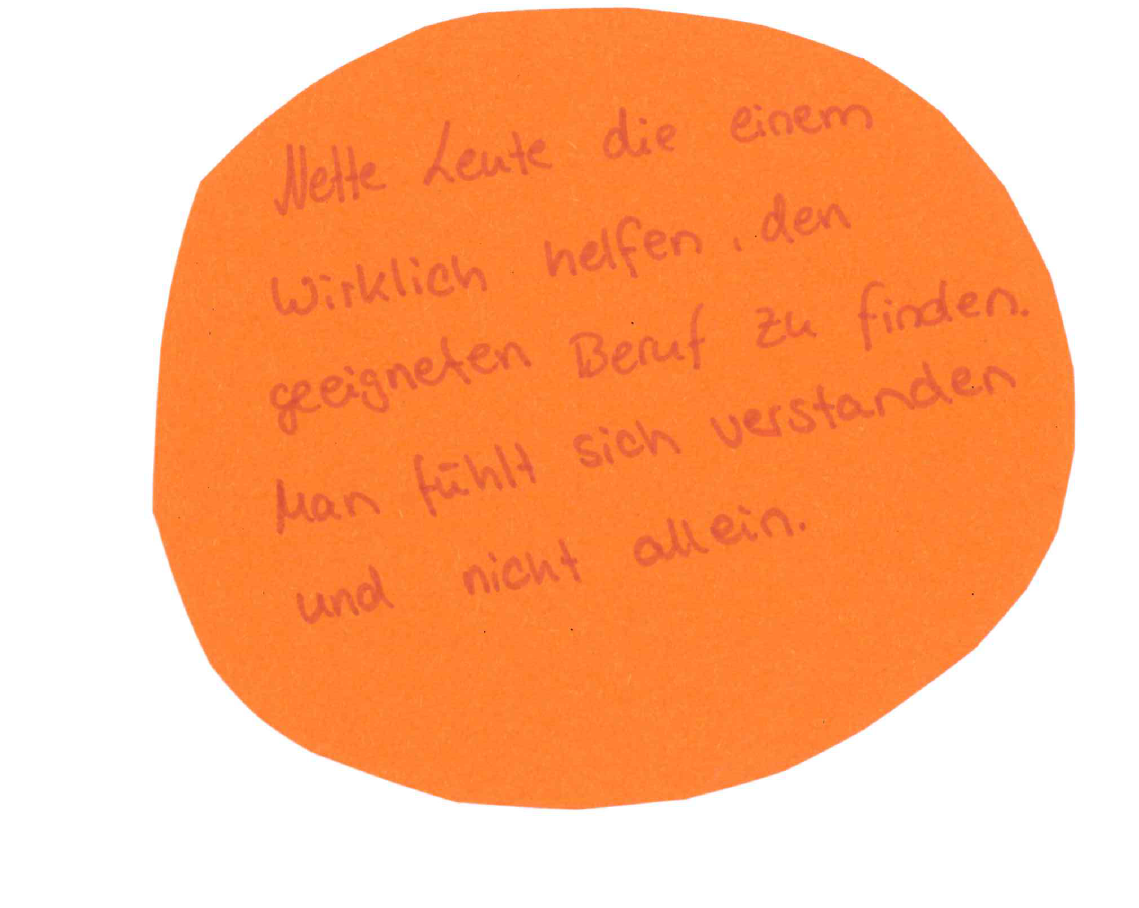 Nette Leute die einem
wirklich helfen, den
geeigneten Beruf zu finden.
Man fühlt sich verstanden
und nicht allein.